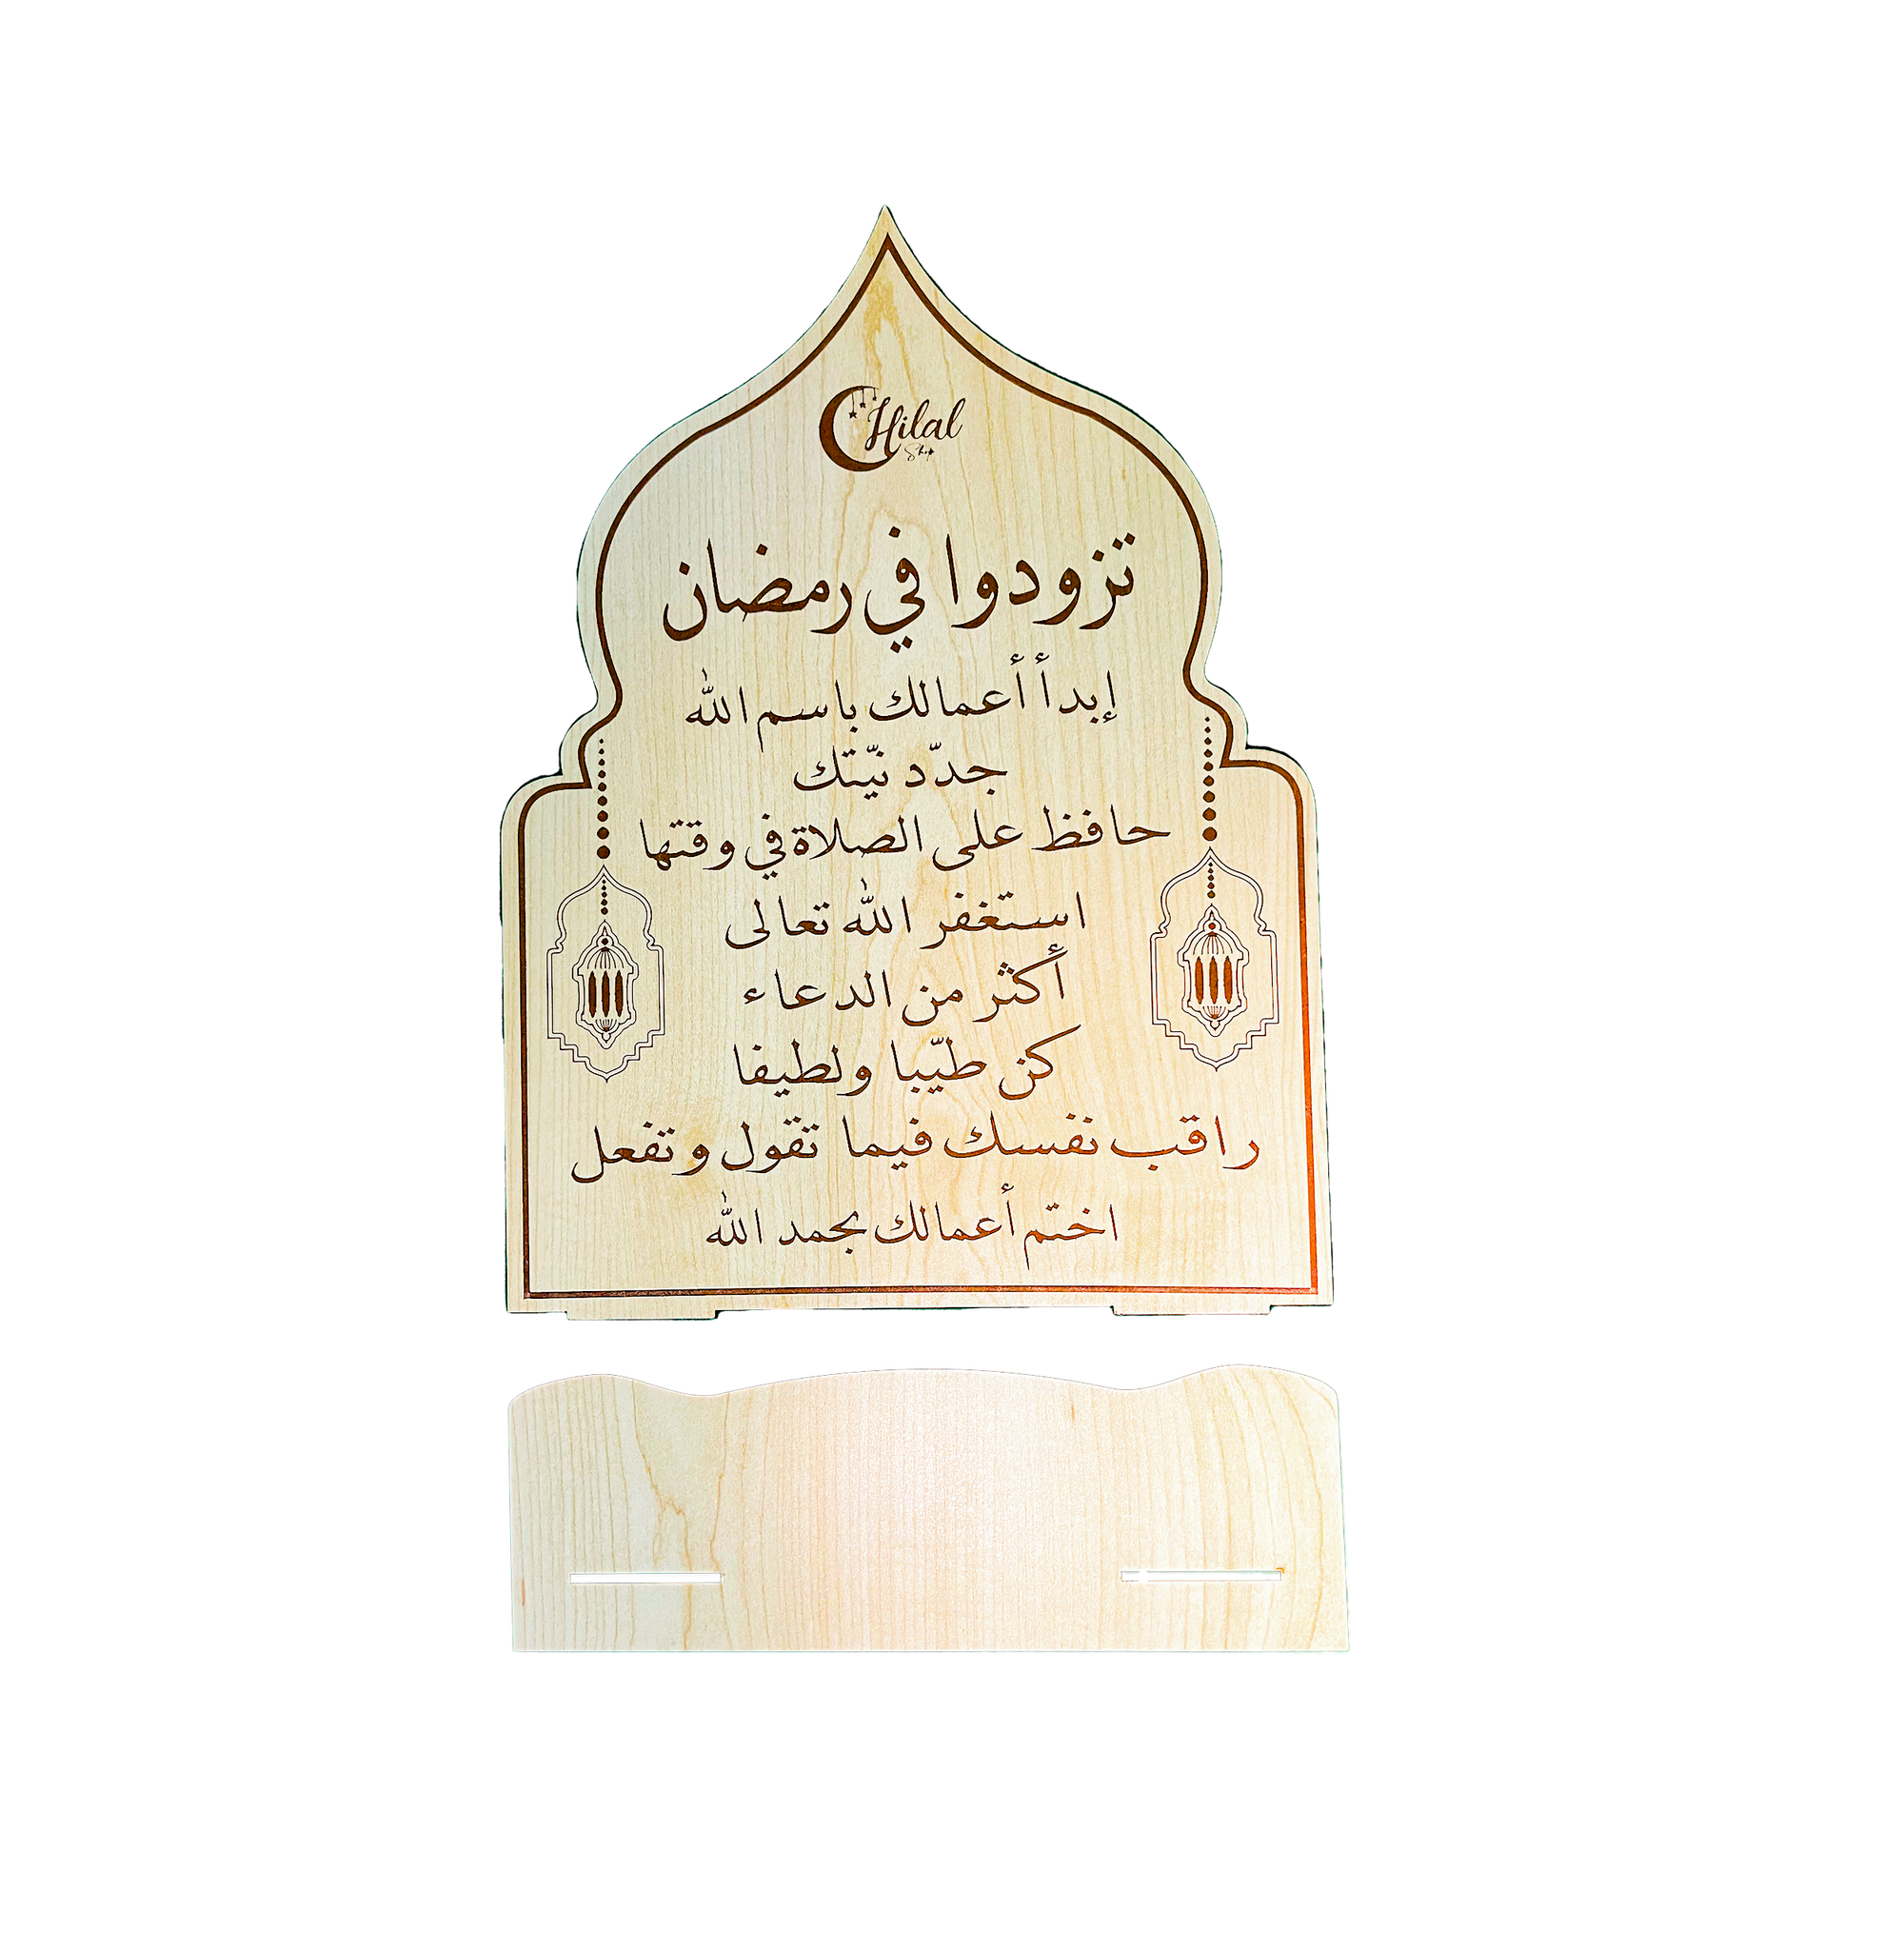 Hilal
Shop
تزودوا في رمضان
إبدأ أعمالك باسم الله
جدّد نيّتك
حافظ على الصلاة في وقتها
استغفر الله تعالى
أكثر من الدعاء
كن طيّبا ولطيفا
راقب نفسك فيما تقول وتفعل
اختم أعمالك بحمد الله